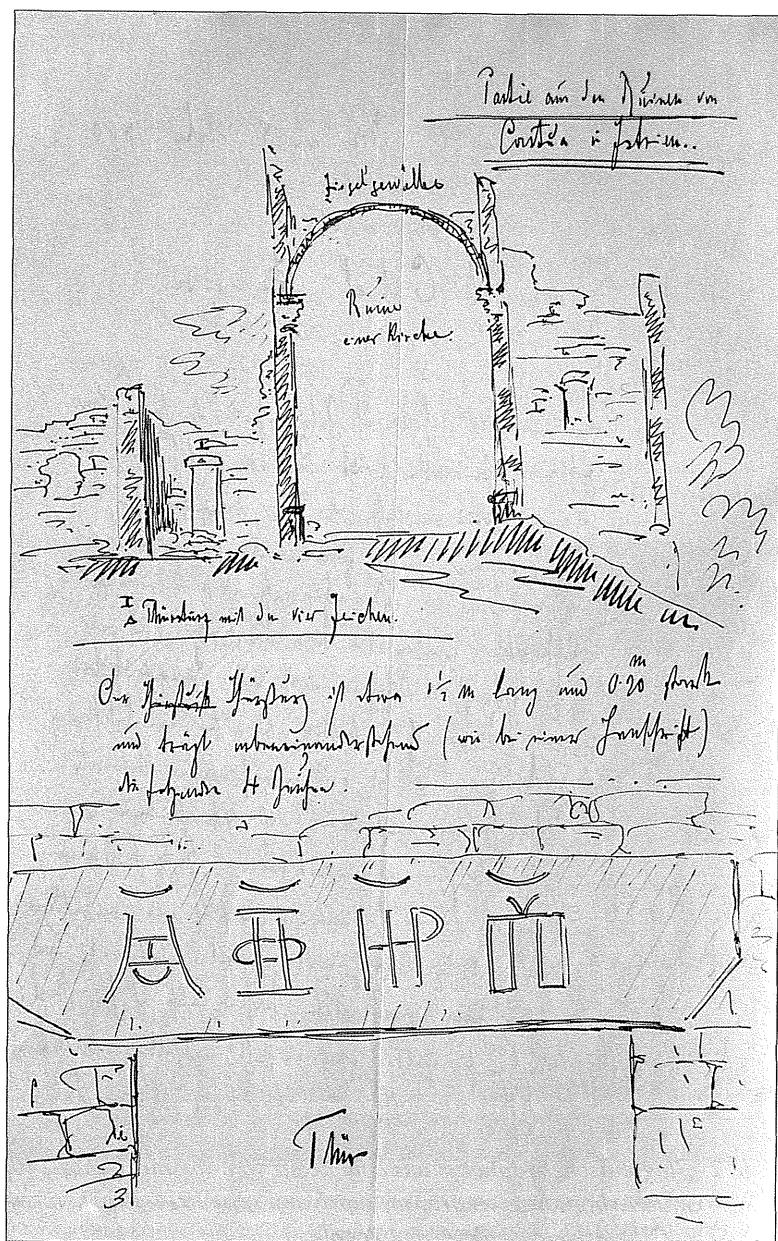 Partie aus den Ruinen von
in Istrien..
Ziegelgewölbe
Ruine
einer Kirche.
I
I
I
Thürsturz mit den vier Zeichen.
Der Thürsturz ist etwa 1½ m lang und 0.20 m stark
und trägt nebeneinanderstehend (wie bei einer Inschrift)
die folgenden 4 Zeichen.
Thür
1
2
3